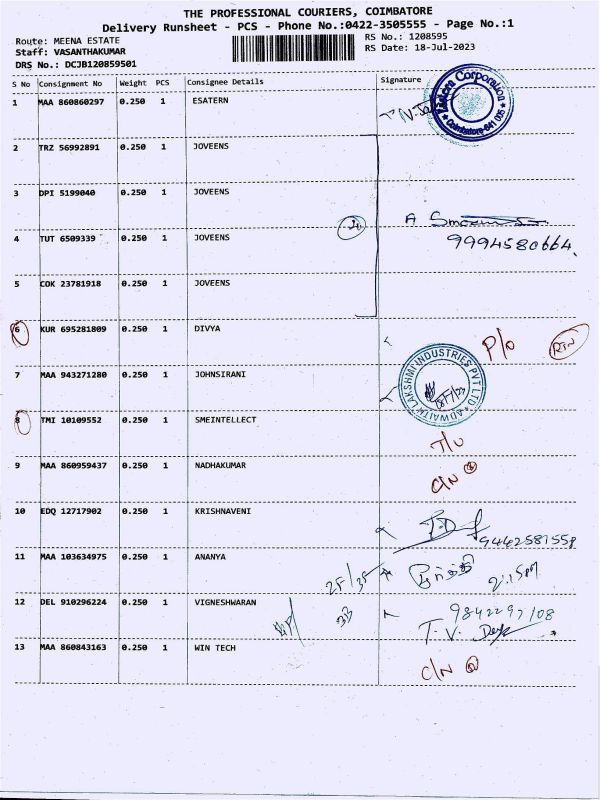 THE PROFESSIONAL COURIERS, COIMBATORE
Delivery Runsheet - PCS - Phone No.:0422-3505555 - Page No.:1
Route: MEENA ESTATE
Staff: VASANTHAKUMAR
DRS No.: DCJB120859501
RS No.: 1208595
RS Date: 18-Jul-2023
S No Consignment No Weight PCS Consignee Details Signature
1 MAA 860860297 0.250 1 ESATERN
Corporation
Coimbatore-641 005
2 TRZ 56992891 0.250 1 JOVEENS
3 DPI 5199040 0.250 1 JOVEENS
A
4 TUT 6509339 0.250 1 JOVEENS
9994580664
5 COK 23781918 0.250 1 JOVEENS
6 KUR 695281809 0.250 1 DIVYA P/O RTN
7 MAA 943271280 0.250 1 JOHNSIRANI
ADWAITH LAKSHMI INDUSTRIES PVT LTD
8 TMI 10109552 0.250 1 SMEINTELLECT
T/U
9 MAA 860959437 0.250 1 NADHAKUMAR
C/N
10 EDQ 12717902 0.250 1 KRISHNAVENI
9442581558
11 MAA 103634975 0.250 1 ANANYA
2.15PM
12 DEL 910296224 0.250 1 VIGNESHWARAN 9842297108
T. V.
13 MAA 860843163 0.250 1 WIN TECH
C/N